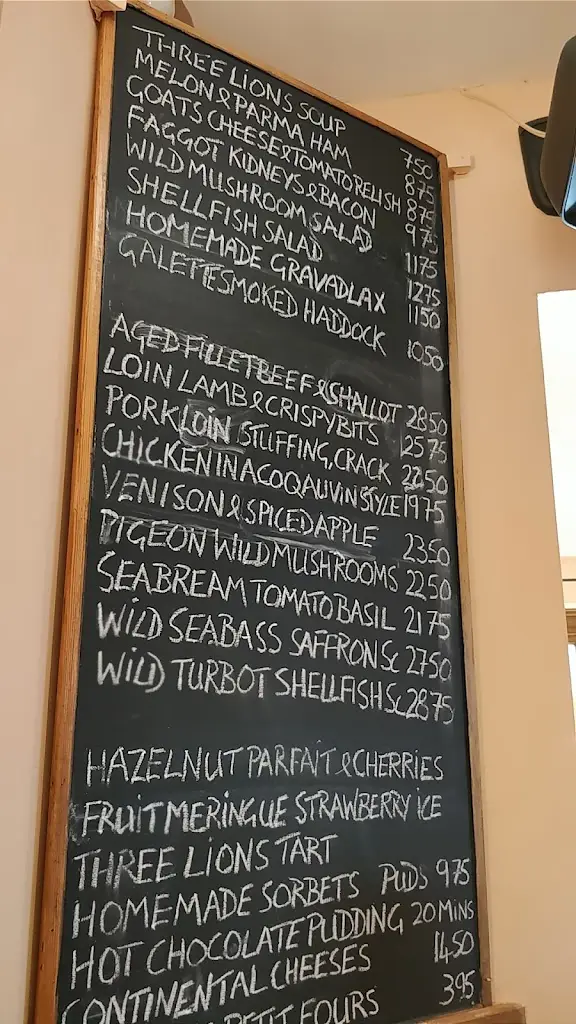 THREE LIONS SOUP 750
MELON & PARMA HAM 875
GOATS CHEESE & TOMATO RELISH 875
FAGGOT KIDNEYS & BACON 975
WILD MUSHROOM SALAD 1175
SHELLFISH SALAD 1275
HOMEMADE GRAVADLAX 1150
GALETTE SMOKED HADDOCK 1050
AGED FILLET BEEF & SHALLOT 2850
LOIN LAMB & CRISPY BITS 2575
PORK LOIN STUFFING, CRACK 2250
CHICKEN IN A COQ AU VIN STYLE 1975
VENISON & SPICED APPLE 2350
PIGEON WILD MUSHROOMS 2250
SEABREAM TOMATO BASIL 2175
WILD SEABASS SAFFRON SC 2750
WILD TURBOT SHELLFISH SC 2875
HAZELNUT PARFAIT & CHERRIES
FRUIT MERINGUE STRAWBERRY ICE
THREE LIONS TART
HOMEMADE SORBETS PUDS 975
HOT CHOCOLATE PUDDING 20 MINS
CONTINENTAL CHEESES 1450
PETIT FOURS 395